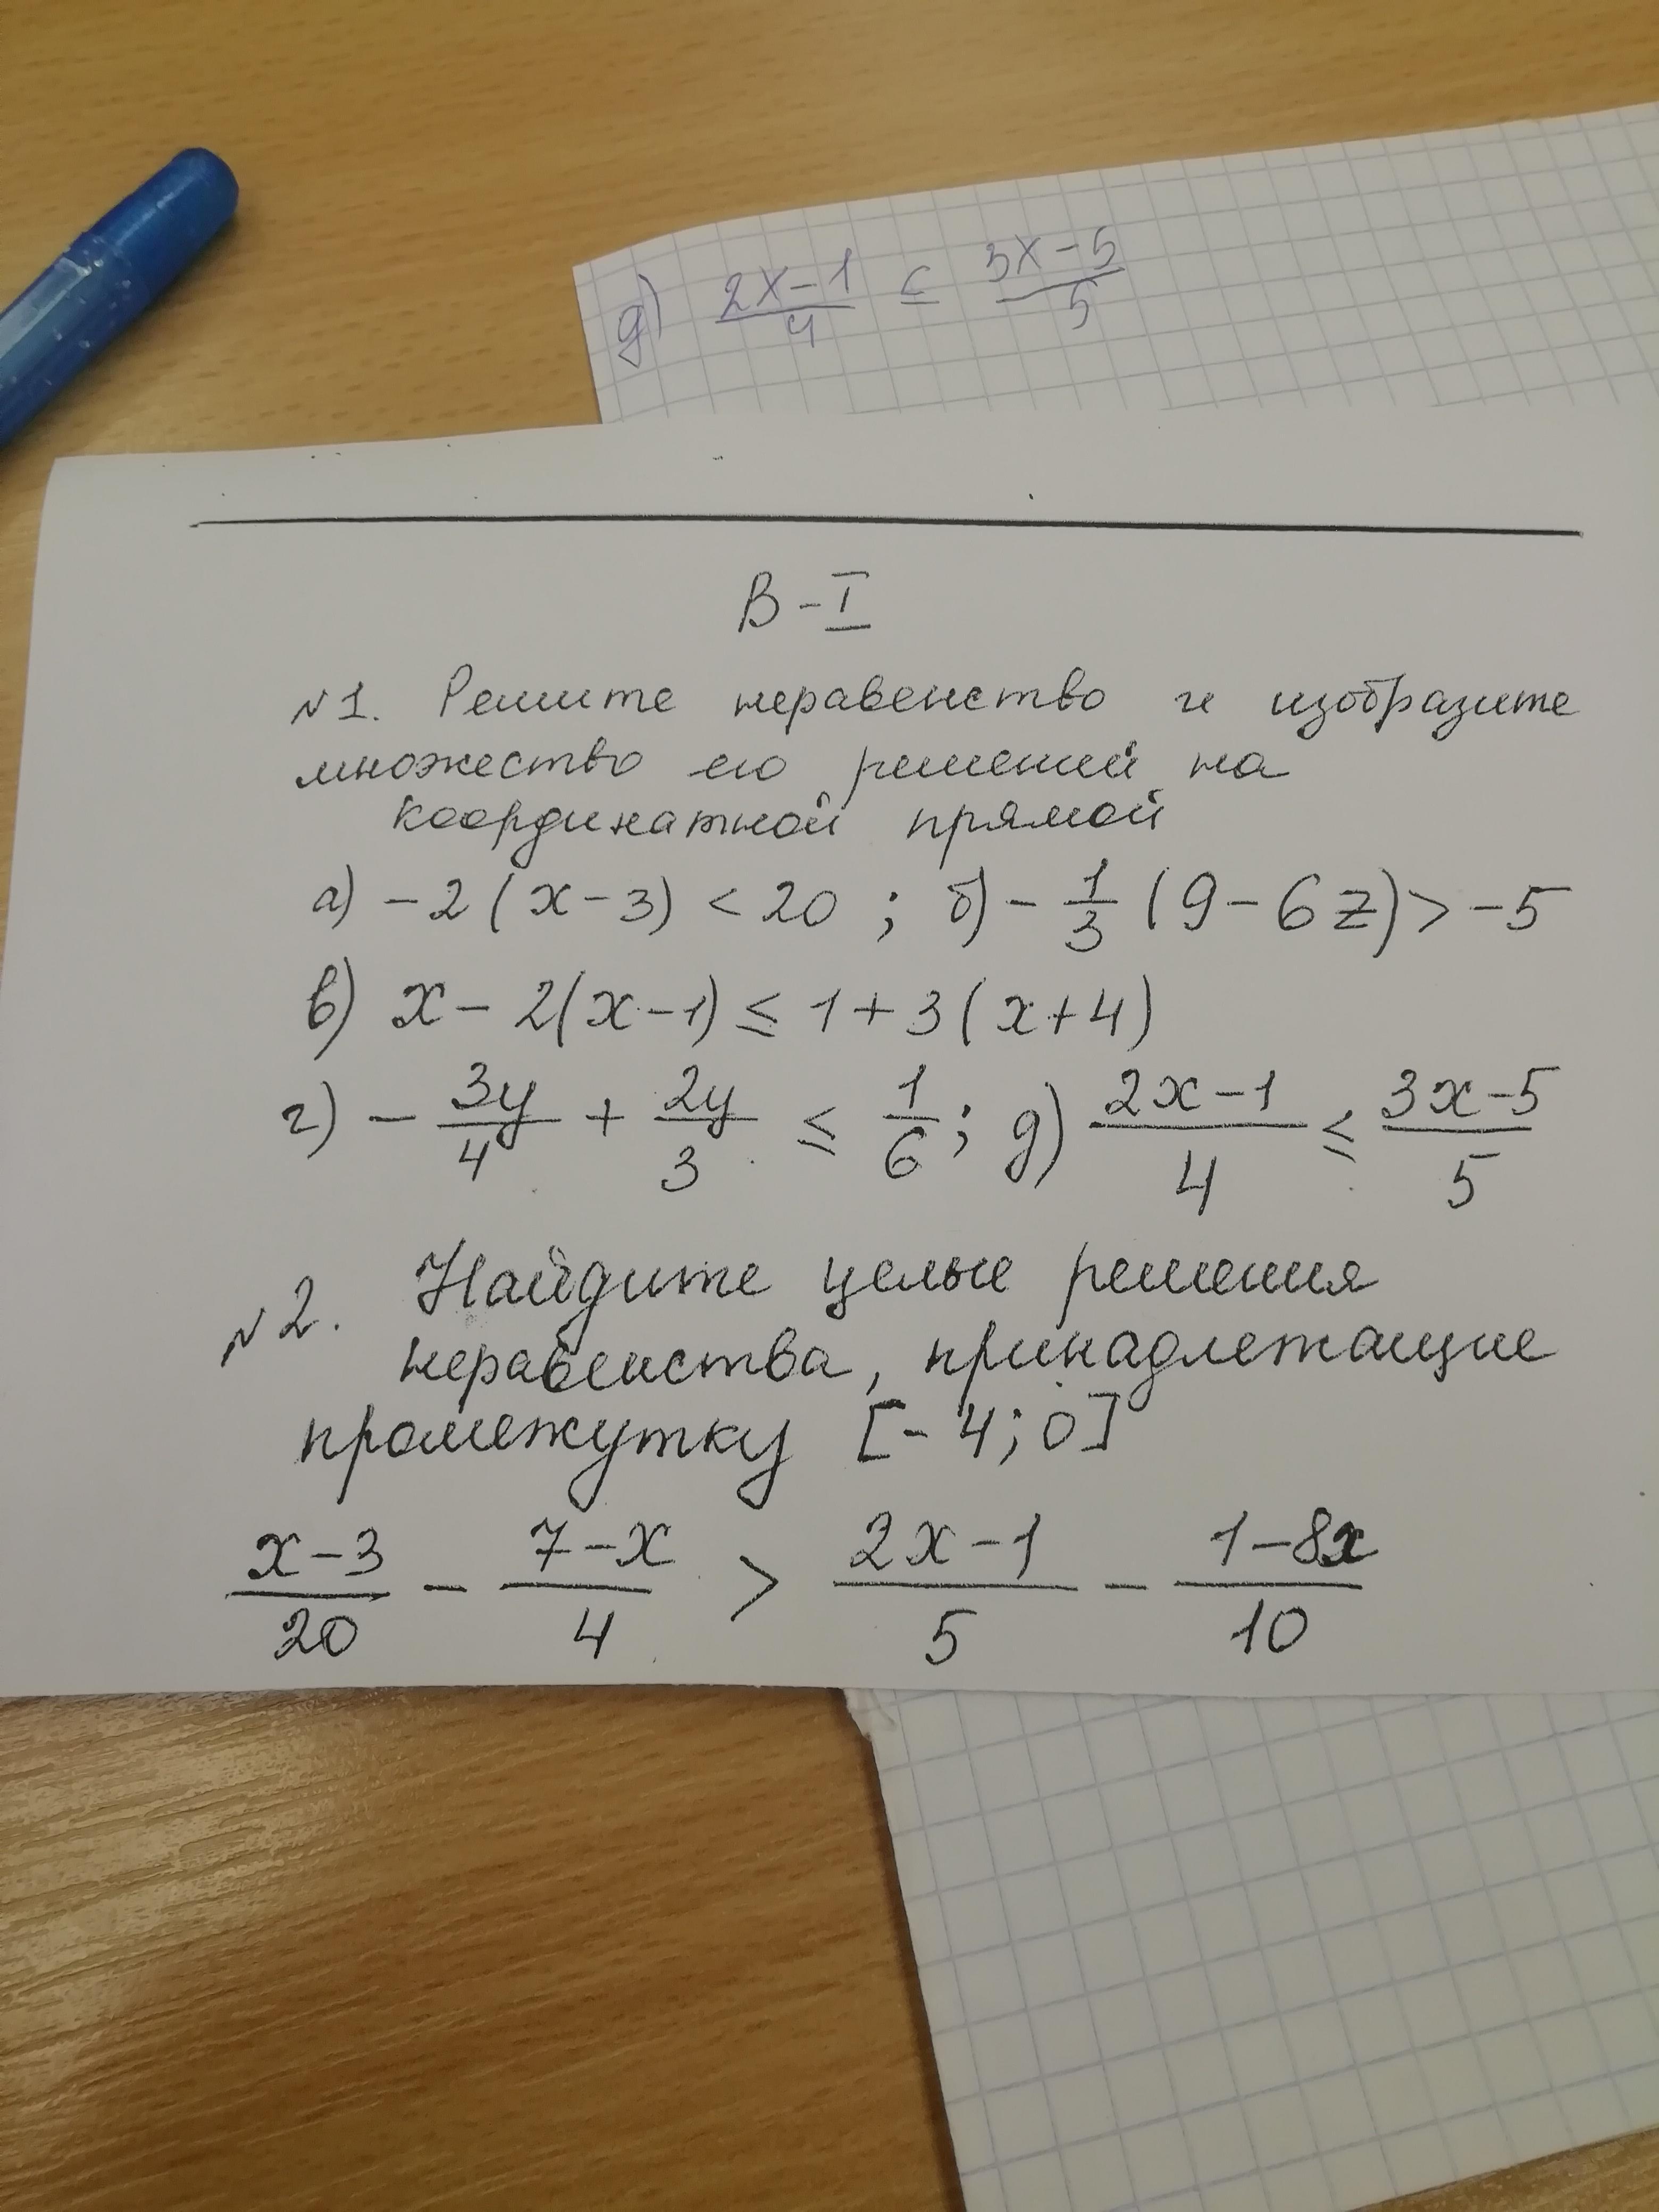 д) (2x-1)/4 ≤ (3x-5)/5
В-I
№1. Решите неравенство и изобразите
множество его решений на
координатной прямой
а) -2(x-3)<20; б) -1/3(9-6z)>-5
в) x-2(x-1)≤1+3(x+4)
г) -3y/4 + 2y/3 ≤ 1/6; д) (2x-1)/4 ≤ (3x-5)/5
№2. Найдите целые решения
неравенства, принадлежащие
промежутку [-4;0]
(x-3)/20 - (7-x)/4 > (2x-1)/5 - (1-8x)/10